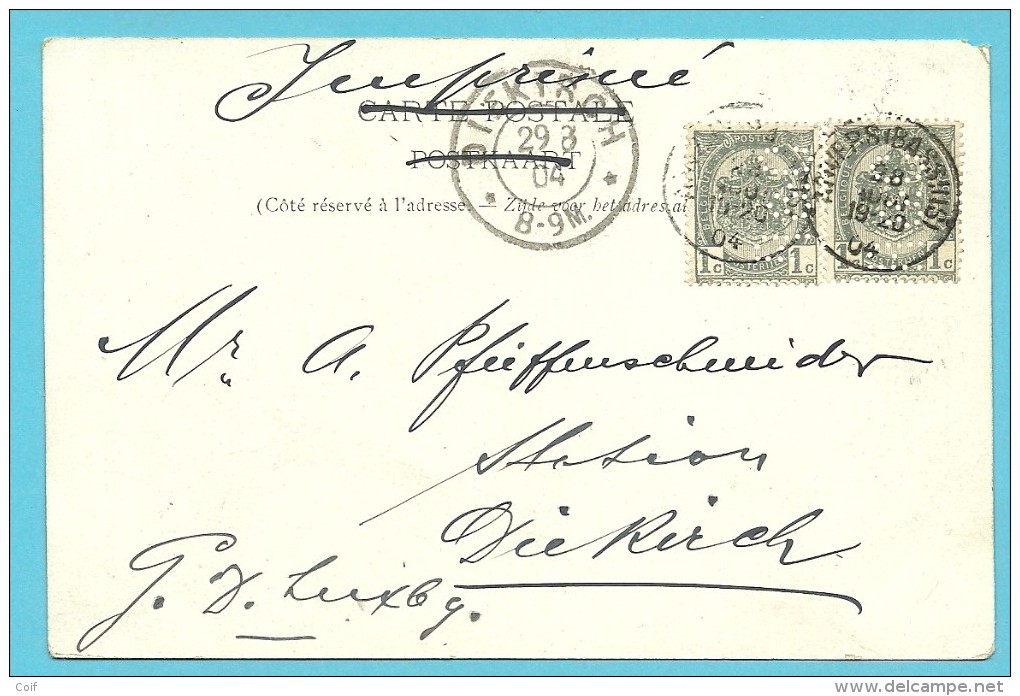 Imprimé
CARTE POSTALE
POSTKAART
(Côté réservé à l'adresse. — Zijde voor het adres
DIEKIRCH
29 8
04
8-9M.
POSTES
1c 1c
19-20
04
ANVERS (BASSINS)
28
19-20
04
1c 1c
Mr. A. Pfeiffenschneider
Station
Diekirch
G. D. Luxbg.
Coif
www.delcampe.net